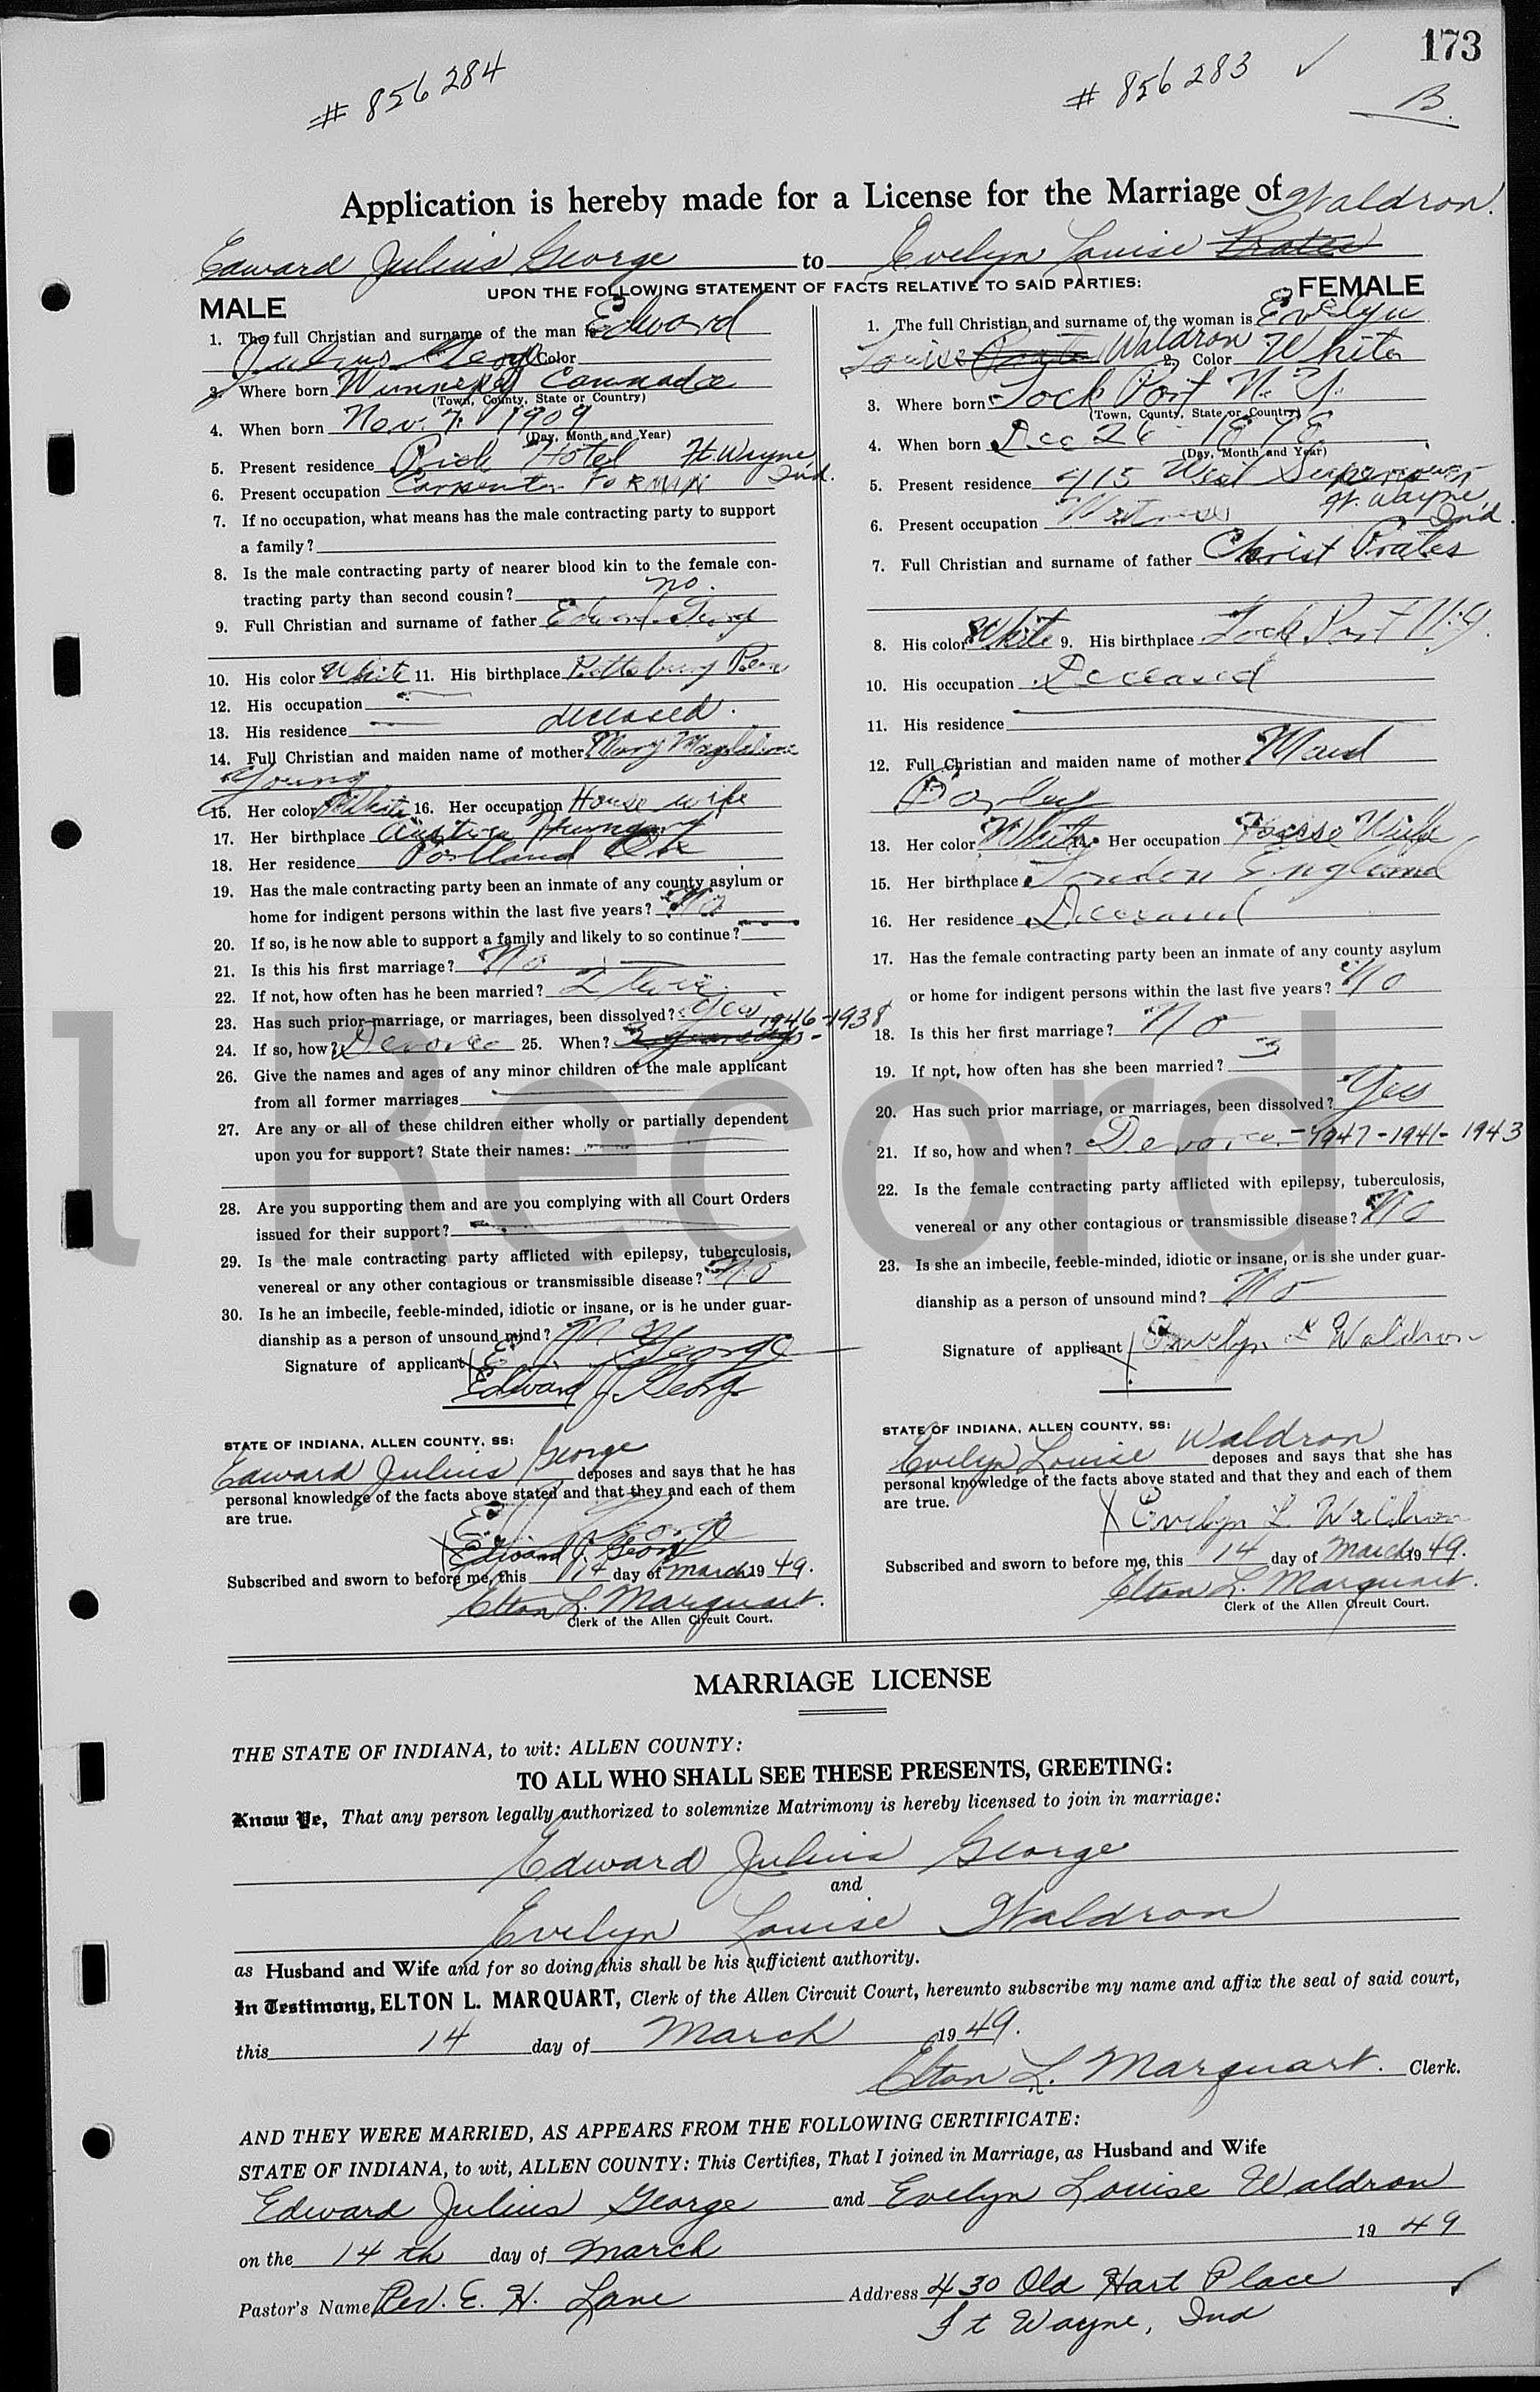 173
# 856284
# 856283 ✓
B.
Application is hereby made for a License for the Marriage of Waldron.
Edward Julius George to Evelyn Louise
UPON THE FOLLOWING STATEMENT OF FACTS RELATIVE TO SAID PARTIES:
MALE
1. The full Christian and surname of the man is Edward
Julius George Color
3. Where born Winnepeg Cannada
(Town, County, State or Country)
4. When born Nov. 7. 1909
(Day, Month and Year)
5. Present residence Rich Hotel Ft. Wayne, Ind.
6. Present occupation Carpenter
7. If no occupation, what means has the male contracting party to support
a family?
8. Is the male contracting party of nearer blood kin to the female con-
tracting party than second cousin? no.
9. Full Christian and surname of father Edward George
10. His color White 11. His birthplace Pittsburg Penn
12. His occupation
13. His residence deceased.
14. Full Christian and maiden name of mother Mary Magdaline
Young
15. Her color White 16. Her occupation House wife
17. Her birthplace Austria Hungary
18. Her residence Portland Ore
19. Has the male contracting party been an inmate of any county asylum or
home for indigent persons within the last five years? No
20. If so, is he now able to support a family and likely to so continue?
21. Is this his first marriage? No
22. If not, how often has he been married? 2
23. Has such prior marriage, or marriages, been dissolved? Yes
24. If so, how? Devorce 25. When? 3 years ago 1946-1938
26. Give the names and ages of any minor children of the male applicant
from all former marriages
27. Are any or all of these children either wholly or partially dependent
upon you for support? State their names:
28. Are you supporting them and are you complying with all Court Orders
issued for their support?
29. Is the male contracting party afflicted with epilepsy, tuberculosis,
venereal or any other contagious or transmissible disease? No
30. Is he an imbecile, feeble-minded, idiotic or insane, or is he under guar-
dianship as a person of unsound mind?
Signature of applicant E. J. George
Edward J. George
STATE OF INDIANA, ALLEN COUNTY, SS:
Edward Julius George deposes and says that he has
personal knowledge of the facts above stated and that they and each of them
are true.
E. J. George
Edward J. George
Subscribed and sworn to before me, this 14 day of March 1949.
Elton L. Marquart.
Clerk of the Allen Circuit Court.
FEMALE
1. The full Christian and surname of the woman is Evelyn
Louise Waldron 2. Color White
3. Where born Lock Port N. Y.
(Town, County, State or Country)
4. When born Dec 26
(Day, Month and Year)
5. Present residence 415 West Superior
Ft. Wayne, Ind.
6. Present occupation
7. Full Christian and surname of father Christ Prates
8. His color White 9. His birthplace Lock Port N.Y.
10. His occupation Deceased
11. His residence
12. Full Christian and maiden name of mother Maud
13. Her color White 14. Her occupation House Wife
15. Her birthplace London England
16. Her residence Deceased
17. Has the female contracting party been an inmate of any county asylum
or home for indigent persons within the last five years? No
18. Is this her first marriage? No
19. If not, how often has she been married? 3
20. Has such prior marriage, or marriages, been dissolved? Yes
21. If so, how and when? Devorce - 1947 - 1941 - 1943
22. Is the female contracting party afflicted with epilepsy, tuberculosis,
venereal or any other contagious or transmissible disease? No
23. Is she an imbecile, feeble-minded, idiotic or insane, or is she under guar-
dianship as a person of unsound mind? No
Signature of applicant Evelyn L Waldron
STATE OF INDIANA, ALLEN COUNTY, SS:
Evelyn Louise Waldron deposes and says that she has
personal knowledge of the facts above stated and that they and each of them
are true.
Evelyn L Waldron
Subscribed and sworn to before me, this 14 day of March 1949.
Elton L. Marquart.
Clerk of the Allen Circuit Court.
l Record
MARRIAGE LICENSE
THE STATE OF INDIANA, to wit: ALLEN COUNTY:
TO ALL WHO SHALL SEE THESE PRESENTS, GREETING:
Know Ye, That any person legally authorized to solemnize Matrimony is hereby licensed to join in marriage:
Edward Julius George
and
Evelyn Louise Waldron
as Husband and Wife and for so doing this shall be his sufficient authority.
In Testimony, ELTON L. MARQUART, Clerk of the Allen Circuit Court, hereunto subscribe my name and affix the seal of said court,
this 14 day of March 1949.
Elton L. Marquart. Clerk.
AND THEY WERE MARRIED, AS APPEARS FROM THE FOLLOWING CERTIFICATE:
STATE OF INDIANA, to wit, ALLEN COUNTY: This Certifies, That I joined in Marriage, as Husband and Wife
Edward Julius George and Evelyn Louise Waldron
on the 14th day of March 1949
Pastor's Name Rev. E. H. Lane Address 430 Old Hart Place ✓
Ft Wayne, Ind